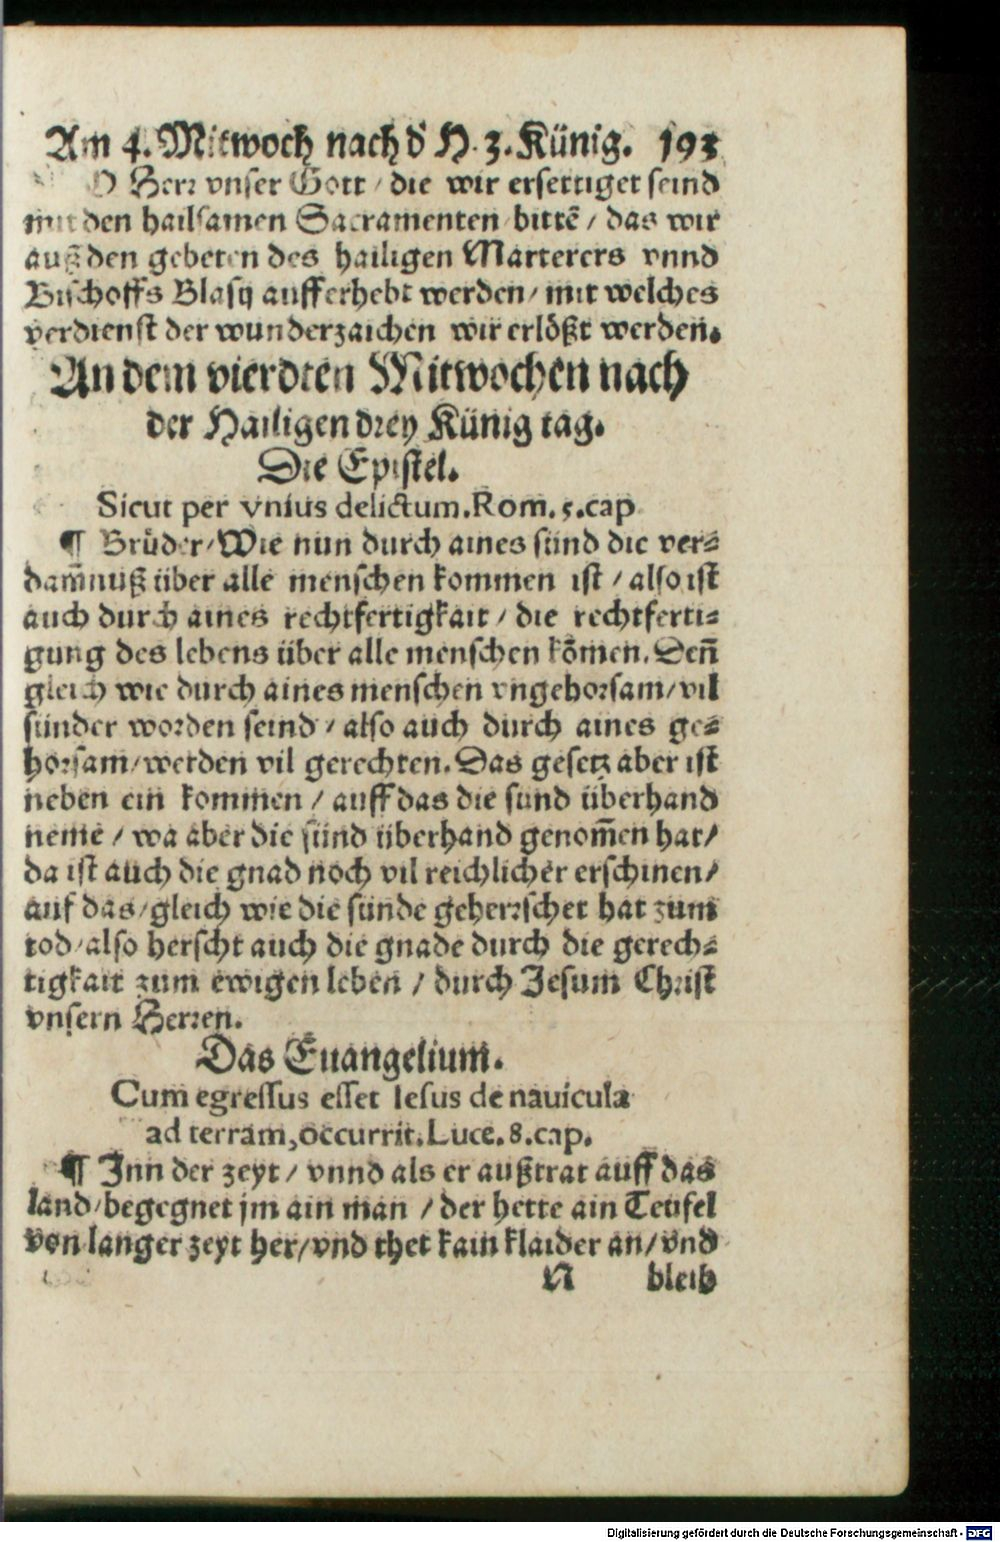 Am 4. Mitwoch nach d' H. 3. Künig. 193
O Herr vnser Gott / die wir ersettiget seind
mit den hailsamen Sacramenten bittē / das wir
auß den gebeten des hailigen Marterers vnnd
Bischoffs Blasij aufferhebt werden / mit welches
verdienst der wunderzaichen wir erlößt werden.
An dem vierdten Mitwochen nach
der Hailigen drey Künig tag.
Die Epistel.
Sicut per vnius delictum. Rom. 5. cap
¶ Brůder / Wie nun durch aines sünd die ver=
dam̄nuß über alle menschen kommen ist / also ist
auch durch aines rechtfertigkait / die rechtferti=
gung des lebens über alle menschen kōmen. Deñ
gleich wie durch aines menschen vngehorsam / vil
sünder worden seind / also auch durch aines ge=
horsam / werden vil gerechten. Das gesetz aber ist
neben ein kommen / auff das die sünd überhand
neme / wa aber die sünd überhand genom̄en hat /
da ist auch die gnad noch vil reichlicher erschinen /
auf das / gleich wie die sünde geherrschet hat zum
tod / also herscht auch die gnade durch die gerech=
tigkait zum ewigen leben / durch Jesum Christ
vnsern Herren.
Das Euangelium.
Cum egressus esset Iesus de nauicula
ad terram, occurrit. Luce. 8. cap.
¶ Inn der zeyt / vnnd als er außtrat auff das
land / begegnet jm ain man / der hette ain Teufel
von langer zeyt her / vnd thet kain klaider an / vnd
N bleib
Digitalisierung gefördert durch die Deutsche Forschungsgemeinschaft - DFG